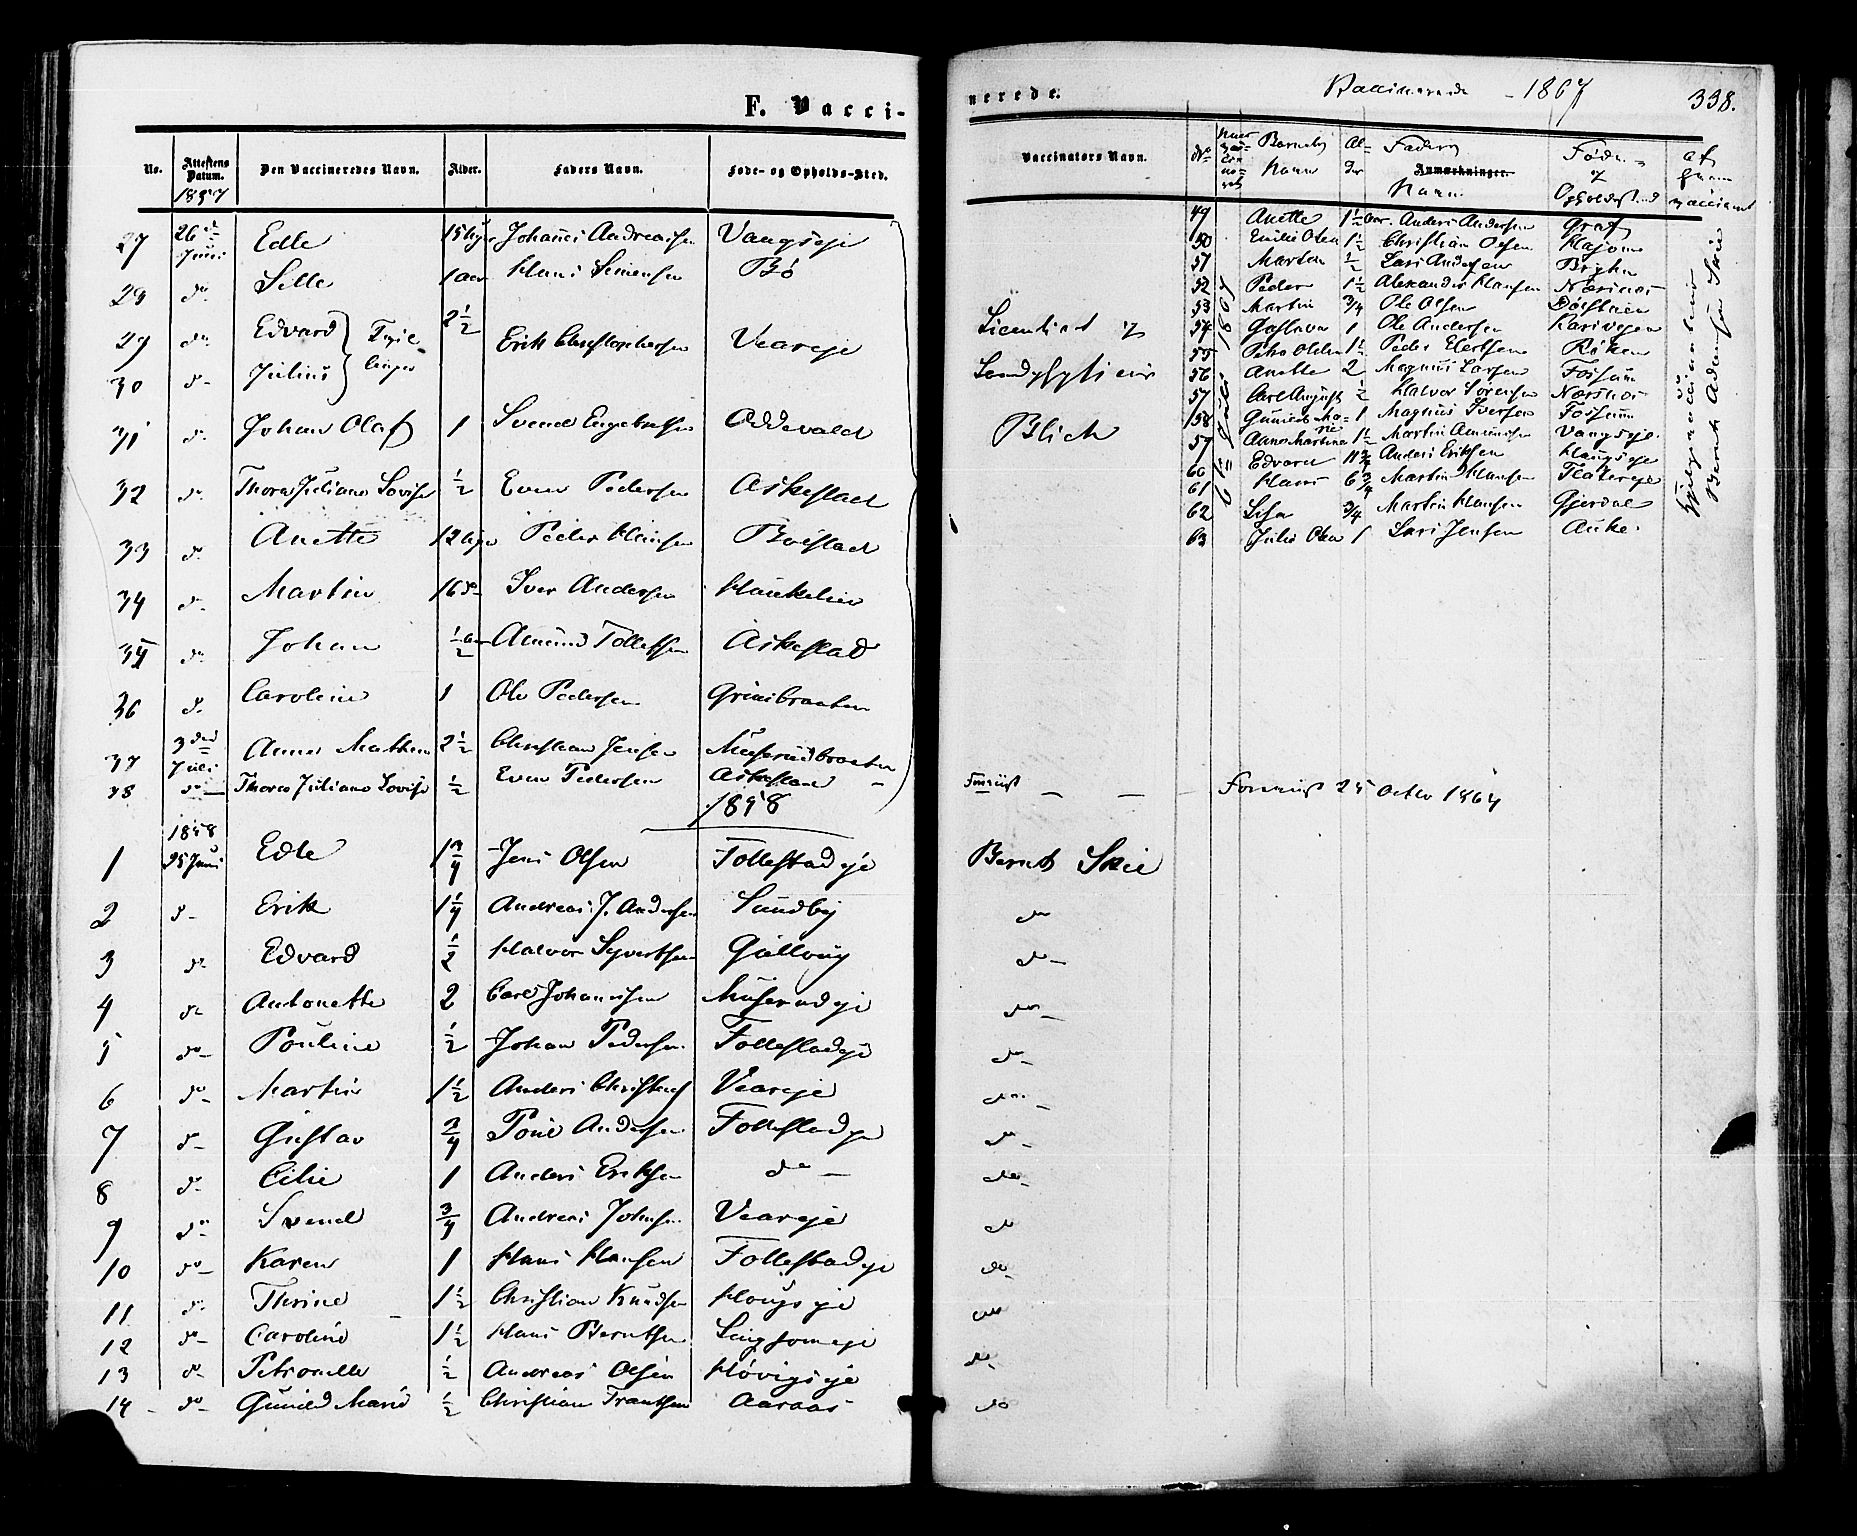 F. Vacci-
No. Attestens Datum. Den Vaccineredes Navn. Alder. Faders Navn. Føde- og Opholds-Sted.
1857
27 26de Juni Edle 15 Johannes Andreassen Vangseje
28 do Sille 1 aar Hans Simensen Bø
29 do Edvard 2 1/2 Erik Christophersen Veareje
30 do Julius
31 do Johan Olaf 1 Svend Engebretsen Oddevald
32 do Thora Juliane Lovise 1/2 Even Pedersen Askestad
33 do Anette 12 Peder Hansen Bøistad
34 do Martin 16 do Iver Andersen Haukelien
35 do Johan 1/2 Amund Tollefsen Askestad
36 do Caroline 1 Ole Pedersen Grinibraaten
37 3die Juli Anne Mathea 2 1/2 Christian Jensen Muserudbraaten
38 do Thora Juliane Lovise 1/2 Even Pedersen Askestad
1858
1858
1 25 Juni Edle 1 3/4 Jens Olsen Follestadeje
2 do Erik 1 1/4 Andreas J. Andersen Sundby
3 do Edvard 1/2 Halvor Syvertsen Gullaug
4 do Antonette 2 Carl Johannesen Muserudeje
5 do Pouline 1/2 Johan Pedersen Follestadeje
6 do Martin 1 1/2 Anders Christens Veareje
7 do Gustav 3/4 Poul Andersen Follestadeje
8 do Cilie 1 Anders Eriksen do
9 do Svend 3/4 Andreas Johnsen Veareje
10 do Karen 1 Hans Hansen Follestadeje
11 do Thrine 1 1/2 Christian Knudsen Hougseje
12 do Caroline 1 1/2 Hans Berntsen Lingsomeje
13 do Petronelle 1/2 Andreas Olsen Høvigseje
14 do Gunild Marie 1/2 Christian Frantsen Aaraas
nerede. Vaccinerede 1867 338.
Vaccinators Navn. No Barnets Navn Alder Faders Anmerkninger Navn Føde- og Opholdssted af hvem vaccineret
49 Anette 1 1/2 aar Anders Andersen Graf
50 Emilie Olea 1 1/2 Christian Olsen Hajom
51 Martin 1/2 Lars Andersen Bryhn
52 Peder 1 1/2 Alexander Hansen Næsnæs
53 Martin 3/4 Ole Olsen Dølstuen
54 Gustava 1 Ole Andersen Karivejen
55 Petra Oldea 1 1/2 Peder Eilertsen Røken
56 Anette 2 Magnus Larsen Fossum
57 Carl August 1/2 Halvor Sørensen Næsnæs
58 Guniel Marie 1 Magnus Iversen Fossum
59 Anne Martine 1 1/2 Martin Amundsen Vangseje
60 Edvard 11 3/4 Anders Eriksen Haugseje
61 Hans 6 3/4 Martin Hansen Flatereje
62 Lisa 3/4 Martin Hansen Gjerdal
63 Julie Olea 1 Lars Jensen Auke
6te Juli 1865
Hjelpevaccinateur Bernt Adamsen Skie
Licentiat og
Landphysicus
Blich
Fornüst
Fornüst 25 Octbr 1864
Bernt Skie
do
do
do
do
do
do
do
do
do
do
do
do
do